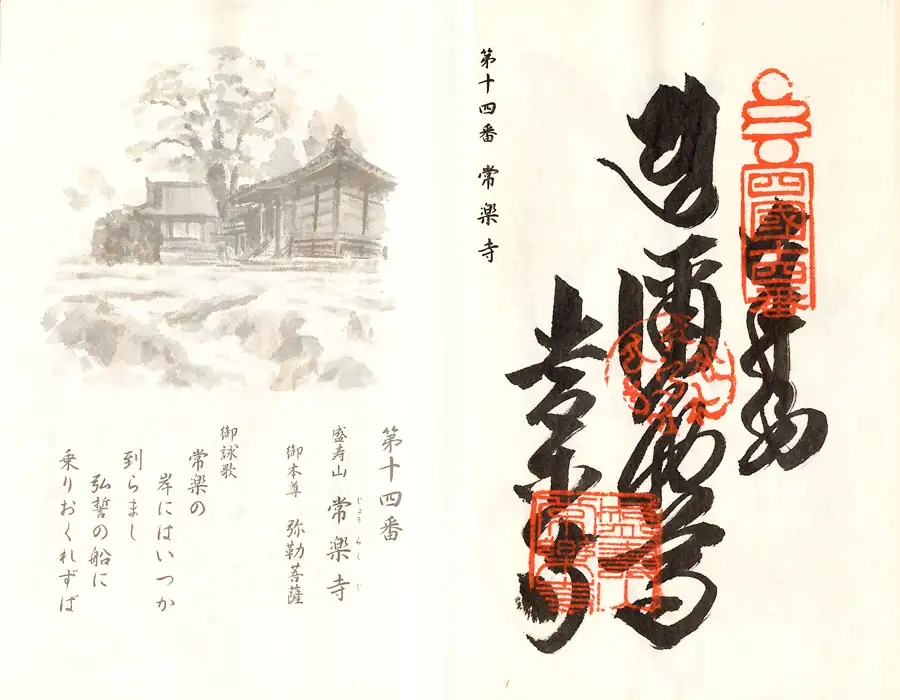 四國十四番
奉納
常楽寺
盛壽山
常樂寺
第十四番 常楽寺
第十四番
盛寿山 常楽寺
じょうらくじ
御本尊 弥勒菩薩
御詠歌
常楽の
岸にはいつか
到らまし
弘誓の船に
乗りおくれずば